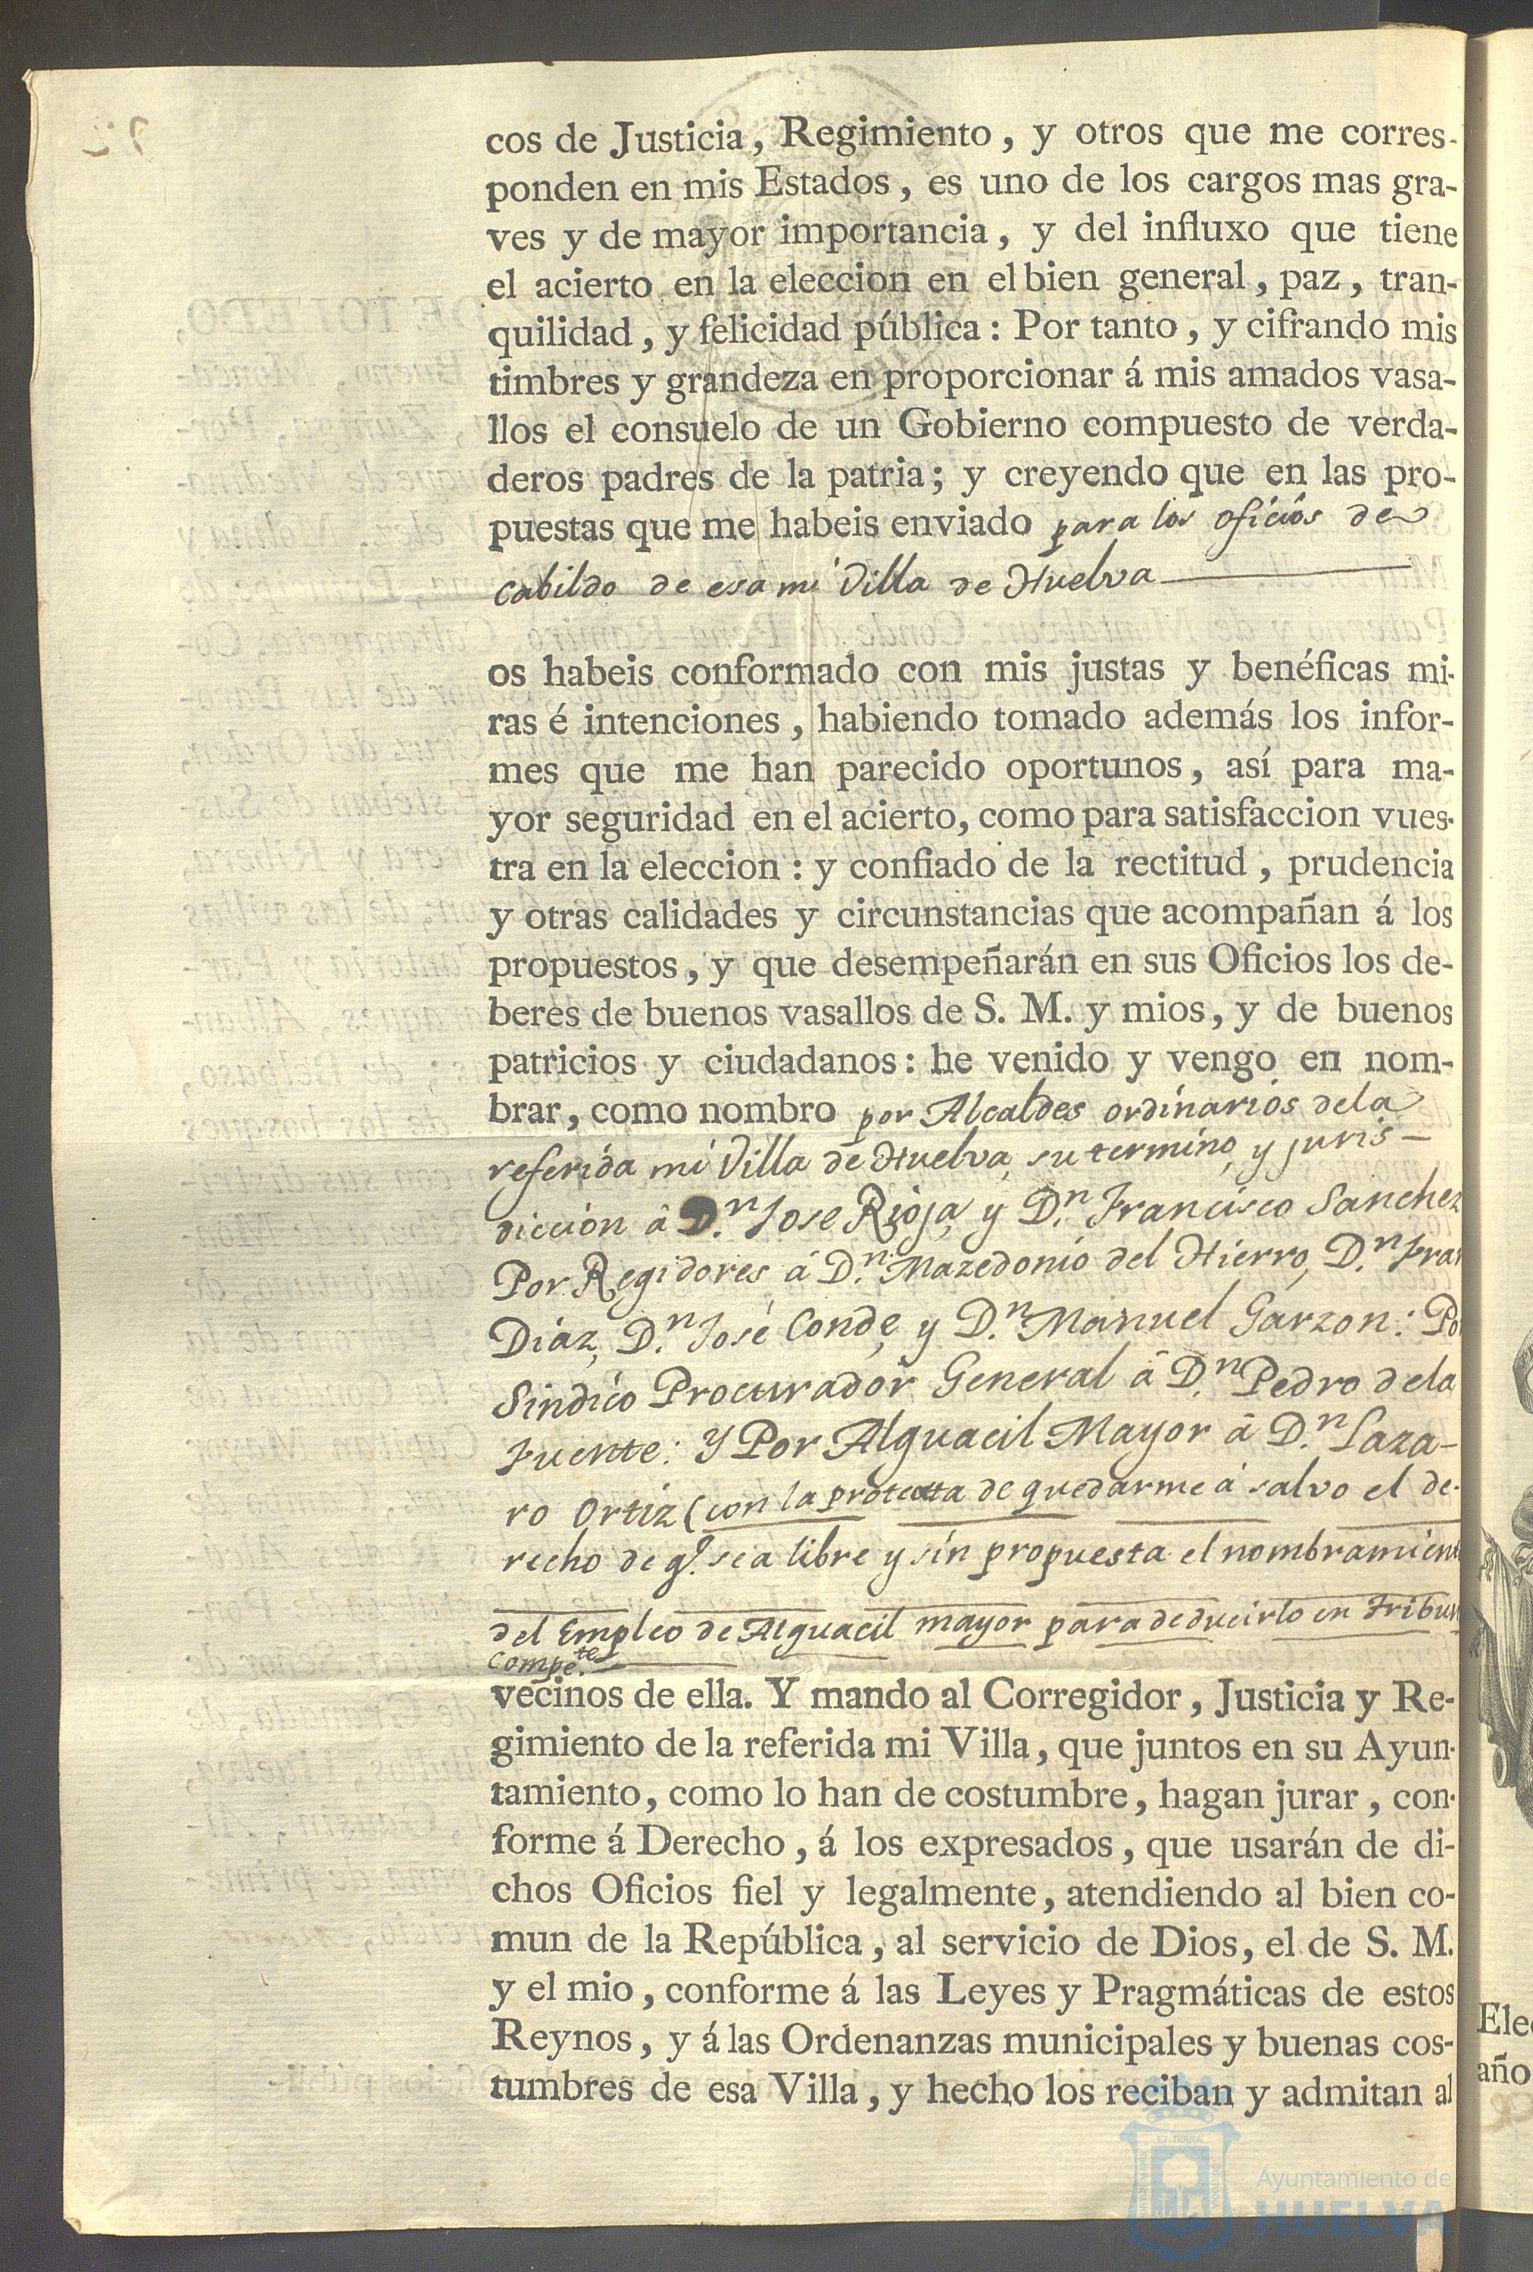 cos de Justicia, Regimiento, y otros que me corres-
ponden en mis Estados, es uno de los cargos mas gra-
ves y de mayor importancia, y del influxo que tiene
el acierto en la eleccion en el bien general, paz, tran-
quilidad, y felicidad pública: Por tanto, y cifrando mis
timbres y grandeza en proporcionar á mis amados vasa-
llos el consuelo de un Gobierno compuesto de verda-
deros padres de la patria; y creyendo que en las pro-
puestas que me habeis enviado para los oficiós de
cabildo de esa mi Villa de Huelva
os habeis conformado con mis justas y benéficas mi-
ras é intenciones, habiendo tomado además los infor-
mes que me han parecido oportunos, así para ma-
yor seguridad en el acierto, como para satisfaccion vues-
tra en la eleccion: y confiado de la rectitud, prudencia
y otras calidades y circunstancias que acompañan á los
propuestos, y que desempeñarán en sus Oficios los de-
beres de buenos vasallos de S. M. y mios, y de buenos
patricios y ciudadanos: he venido y vengo en nom-
brar, como nombro por Alcaldes ordinarios dela
referida mi Villa de Huelva, su termino, y juris-
diccion â D.n Jose Rioja, y D.n Francisco Sanchez
Por Regidores á D.n Mazedonio del Hierro, D.n Fran
Diaz, D.n José Conde, y D.n Manuel Garzon: Por
Sindico Procurador General â D.n Pedro dela
Fuente: Y Por Alguacil Mayor â D.n Laza-
ro Ortiz (con la protexta de quedarme á salvo el de-
recho de q.e sea libre y sin propuesta el nombramient
del Empleo de Alguacil mayor para deducirlo en Tribun
Compe.te
vecinos de ella. Y mando al Corregidor, Justicia y Re-
gimiento de la referida mi Villa, que juntos en su Ayun-
tamiento, como lo han de costumbre, hagan jurar, con-
forme á Derecho, á los expresados, que usarán de di-
chos Oficios fiel y legalmente, atendiendo al bien co-
mun de la República, al servicio de Dios, el de S. M.
y el mio, conforme á las Leyes y Pragmáticas de estos
Reynos, y á las Ordenanzas municipales y buenas cos-
tumbres de esa Villa, y hecho los reciban y admitan al
Ayuntamiento de
HUELVA
Elec
año